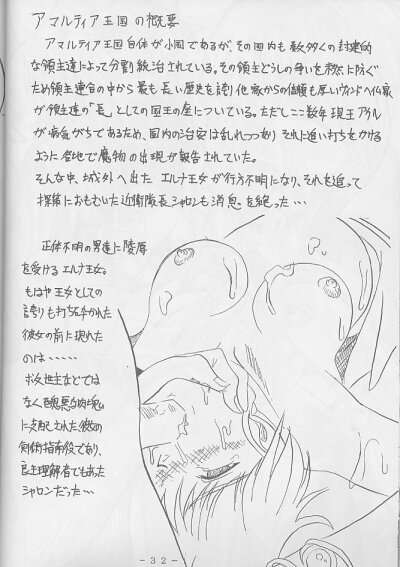 アマルティア王国の概要
アマルティア王国自体が小国であるが、その国内も数多くの封建的
な領主達によって分割統治されている。その領主どうしの争いを未然に防ぐ
ため領主連合の中から最も長い歴史を誇り他家からの信頼も厚いヴァンドヘイム家
が領主達の「長」としての国王の座についている。ただしここ数年現王アゲル
が病気がちであるため、国内の治安は乱れつつあり それに追い打ちをかける
ように各地で魔物の出現が報告されていた。
そんな中、城外へ出た エルナ王女が行方不明になり、それを追って
探索におもむいた近衛隊長シャロンも消息を絶った…
正体不明の男達に陵辱
を受けるエルナ王女。
もはや王女としての
誇りも打ちくだかれた
彼女の前に現れた
のは……
救世主などでは
なく醜悪な肉塊
に支配された彼女の
剣術指南役であり、
良き理解者でもあった
シャロンだった…
-32-